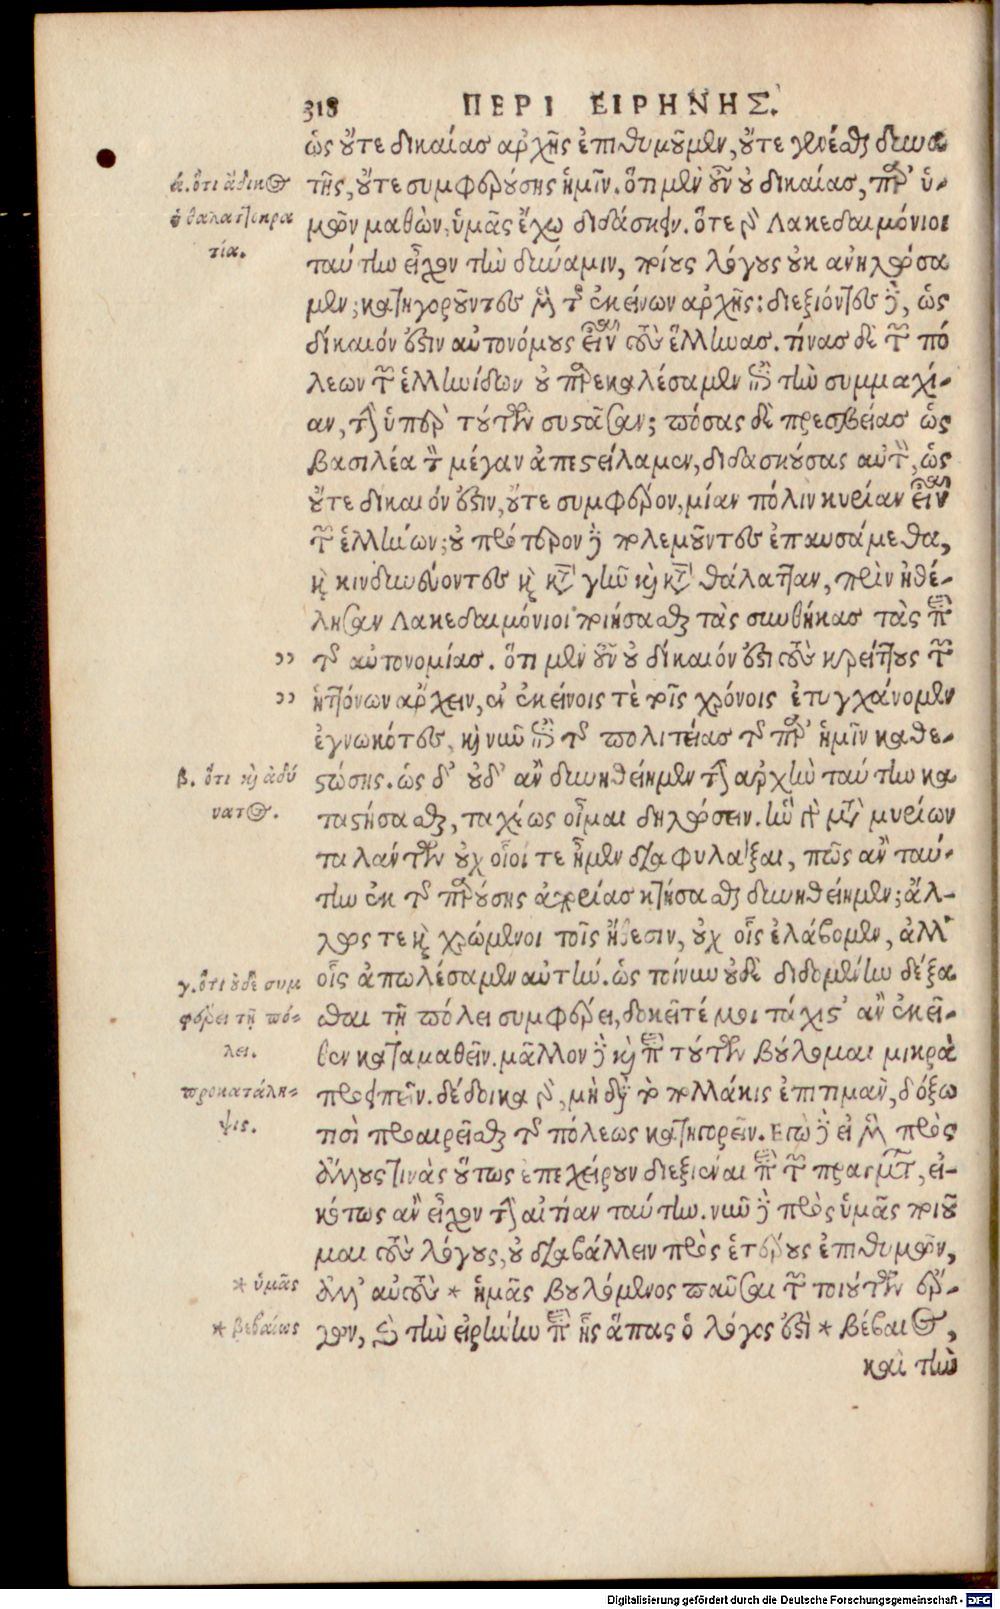 318 ΠΕΡΙ ΕΙΡΗΝΗΣ.
ὡς οὔτε δικαίας ἀρχῆς ἐπιθυμοῦμεν, οὔτε γενέσθαι δυνα
ά. ὅτι ἄδικος
τῆς, οὔτε συμφερούσης ἡμῖν. ὅτι μὲν οὖν οὐ δικαίας, παρ' ὑ-
ἡ θαλαττοκρα
μῶν μαθὼν, ὑμᾶς ἔχω διδάσκειν. ὅτε γὰρ Λακεδαιμόνιοι
τία.
ταύτην εἶχον τὴν δύναμιν, ποίους λόγους οὐκ ἀνηλώσα
μεν; κατηγοροῦντες μὲν τῆς ἐκείνων ἀρχῆς: διεξιόντες δὲ, ὡς
δίκαιόν ἐστιν αὐτονόμους εἶναι τοὺς ἕλληνας. τίνας δὲ τῶν πό
λεων τῶν ἑλληνίδων οὐ παρεκαλέσαμεν ἐπὶ τὴν συμμαχί-
αν, τὴν ὑπὲρ τούτων συστᾶσαν; πόσας δὲ πρεσβείας ὡς
βασιλέα τὸν μέγαν ἀπεστείλαμεν, διδασκούσας αὐτὸν, ὡς
οὔτε δίκαιόν ἐστιν, οὔτε συμφέρον, μίαν πόλιν κυρίαν εἶναι
τῶν ἑλλήνων; οὐ πρότερον δὲ πολεμοῦντες ἐπαυσάμεθα,
καὶ κινδυνεύοντες καὶ κατὰ γῆν καὶ κατὰ θάλατταν, πρὶν ἠθέ-
λησαν Λακεδαιμόνιοι ποιήσασθαι τὰς συνθήκας τὰς περὶ
,, τῆς αὐτονομίας. ὅτι μὲν οὖν οὐ δίκαιόν ἐστι τοὺς κρείττους τῶν
,, ἡττόνων ἄρχειν, ἐν ἐκείνοις τὲ τοῖς χρόνοις ἐτυγχάνομεν
ἐγνωκότες, καὶ νῦν ἐπὶ τῆς πολιτείας τῆς παρ' ἡμῖν καθε-
β. ὅτι καὶ ἀδύ
στώσης. ὡς δ' οὐδ' ἂν δυνηθείημεν τὴν ἀρχὴν ταύτην κα
νατος.
ταστήσασθαι, ταχέως οἶμαι δηλώσειν. ἣν γὰρ μετὰ μυρίων
ταλάντων οὐχ οἷοί τε ἦμεν διαφυλάξαι, πῶς ἂν ταύ-
την ἐκ τῆς παρούσης ἀπορίας κτήσασθαι δυνηθείημεν; ἄλ-
λως τε καὶ χρώμενοι τοῖς ἤθεσιν, οὐχ οἷς ἐλάβομεν, ἀλλ'
γ. ὅτι οὐδὲ συμ
οἷς ἀπωλέσαμεν αὐτήν. ὡς τοίνυν οὐδὲ διδομένην δέξα
φέρει τῇ πό-
σθαι τῇ πόλει συμφέρει, δοκεῖτέ μοι τάχιστ' ἂν ἐκεῖ-
λει.
θεν καταμαθεῖν. μᾶλλον δὲ καὶ περὶ τούτων βούλομαι μικρὰ
προκατάλη-
προειπεῖν. δέδοικα γὰρ, μὴ διὰ τὸ πολλάκις ἐπιτιμᾶν, δόξω
ψις.
τισὶ προαιρεῖσθαι τῆς πόλεως κατηγορεῖν. Εγὼ δὲ εἰ μὲν πρὸς
ἄλλους τινὰς οὕτως ἐπεχείρουν διεξιέναι περὶ τῶν πραγμάτων, εἰ-
κότως ἂν εἶχον τὴν αἰτίαν ταύτην. νῦν δὲ πρὸς ὑμᾶς ποιοῦ
μαι τοὺς λόγους, οὐ διαβάλλειν πρὸς ἑτέρους ἐπιθυμῶν,
* ὑμᾶς
ἀλλ' αὐτοὺς * ἡμᾶς βουλόμενος παῦσαι τῶν τοιούτων ἔρ-
* βεβαίως
γων, καὶ τὴν εἰρήνην περὶ ἧς ἅπας ὁ λόγος ἐστὶ * βέβαιος,
καὶ τὴν
Digitalisierung gefördert durch die Deutsche Forschungsgemeinschaft - DFG